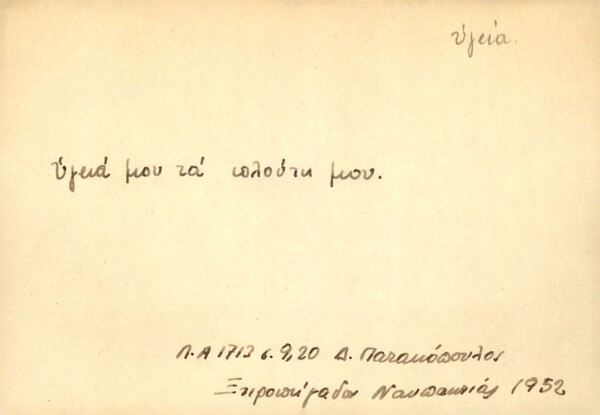 ὑγεία.
Ὑγειά μου τά πλούτη μου.
Λ.Α 1712 σ. 9,20 Δ. Παπακόπουλος
Ξηροπήγαδον Ναυπακτίας 1952